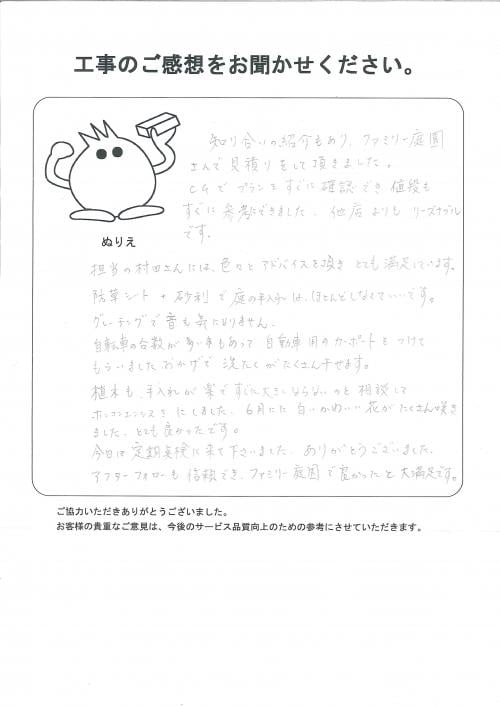 工事のご感想をお聞かせください。
知り合いの紹介もあり、ファミリー庭園
さんで見積りをして頂きました。
CGでプランをすぐに確認でき値段も
すぐに参考にできました、他店よりもリーズナブル
です。
ぬりえ
担当の村田さんには、色々とアドバイスを頂きとても満足しています。
防草シート+砂利で庭の手入れは、ほとんどしなくていいです。
グレーチングで音も気になりません。
自転車の台数が多い事もあって自動車用のカーポートをつけて
もらいましたおかげで洗たくがたくさん干せます。
植木も、手入れが楽ですぐに大きくならないのと相談して
ホンコンエンシスをにしました、6月にに白いかわいい花がたくさん咲き
ました、とても良かったです。
今日は定期点検に来て下さいました、ありがとうございました、
アフターフォローも信頼でき、ファミリー庭園で良かったと大満足です。
ご協力いただきありがとうございました。
お客様の貴重なご意見は、今後のサービス品質向上のための参考にさせていただきます。